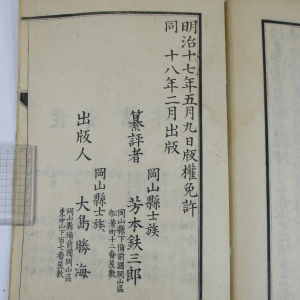 明治十七年五月九日版權免許
同 十八年二月出版
岡山縣士族
纂評者 芳本鉄三郎
岡山縣下備前國岡山區
船着町十二番屋敷
岡山縣士族
出版人 大島勝海
岡山縣備前國岡山區
東中山下百七番屋敷